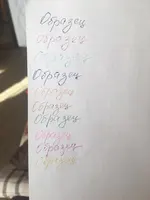 Образец
Образец
Образец
Образец
Образец
Образец
Образец
Образец
Образец
Образец